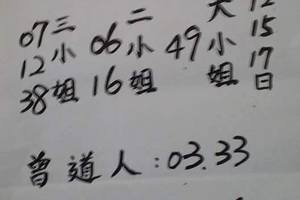 12
15
17日
大小姐
49
二小姐
06
16
三小姐
07
12
38
曾道人:03.33